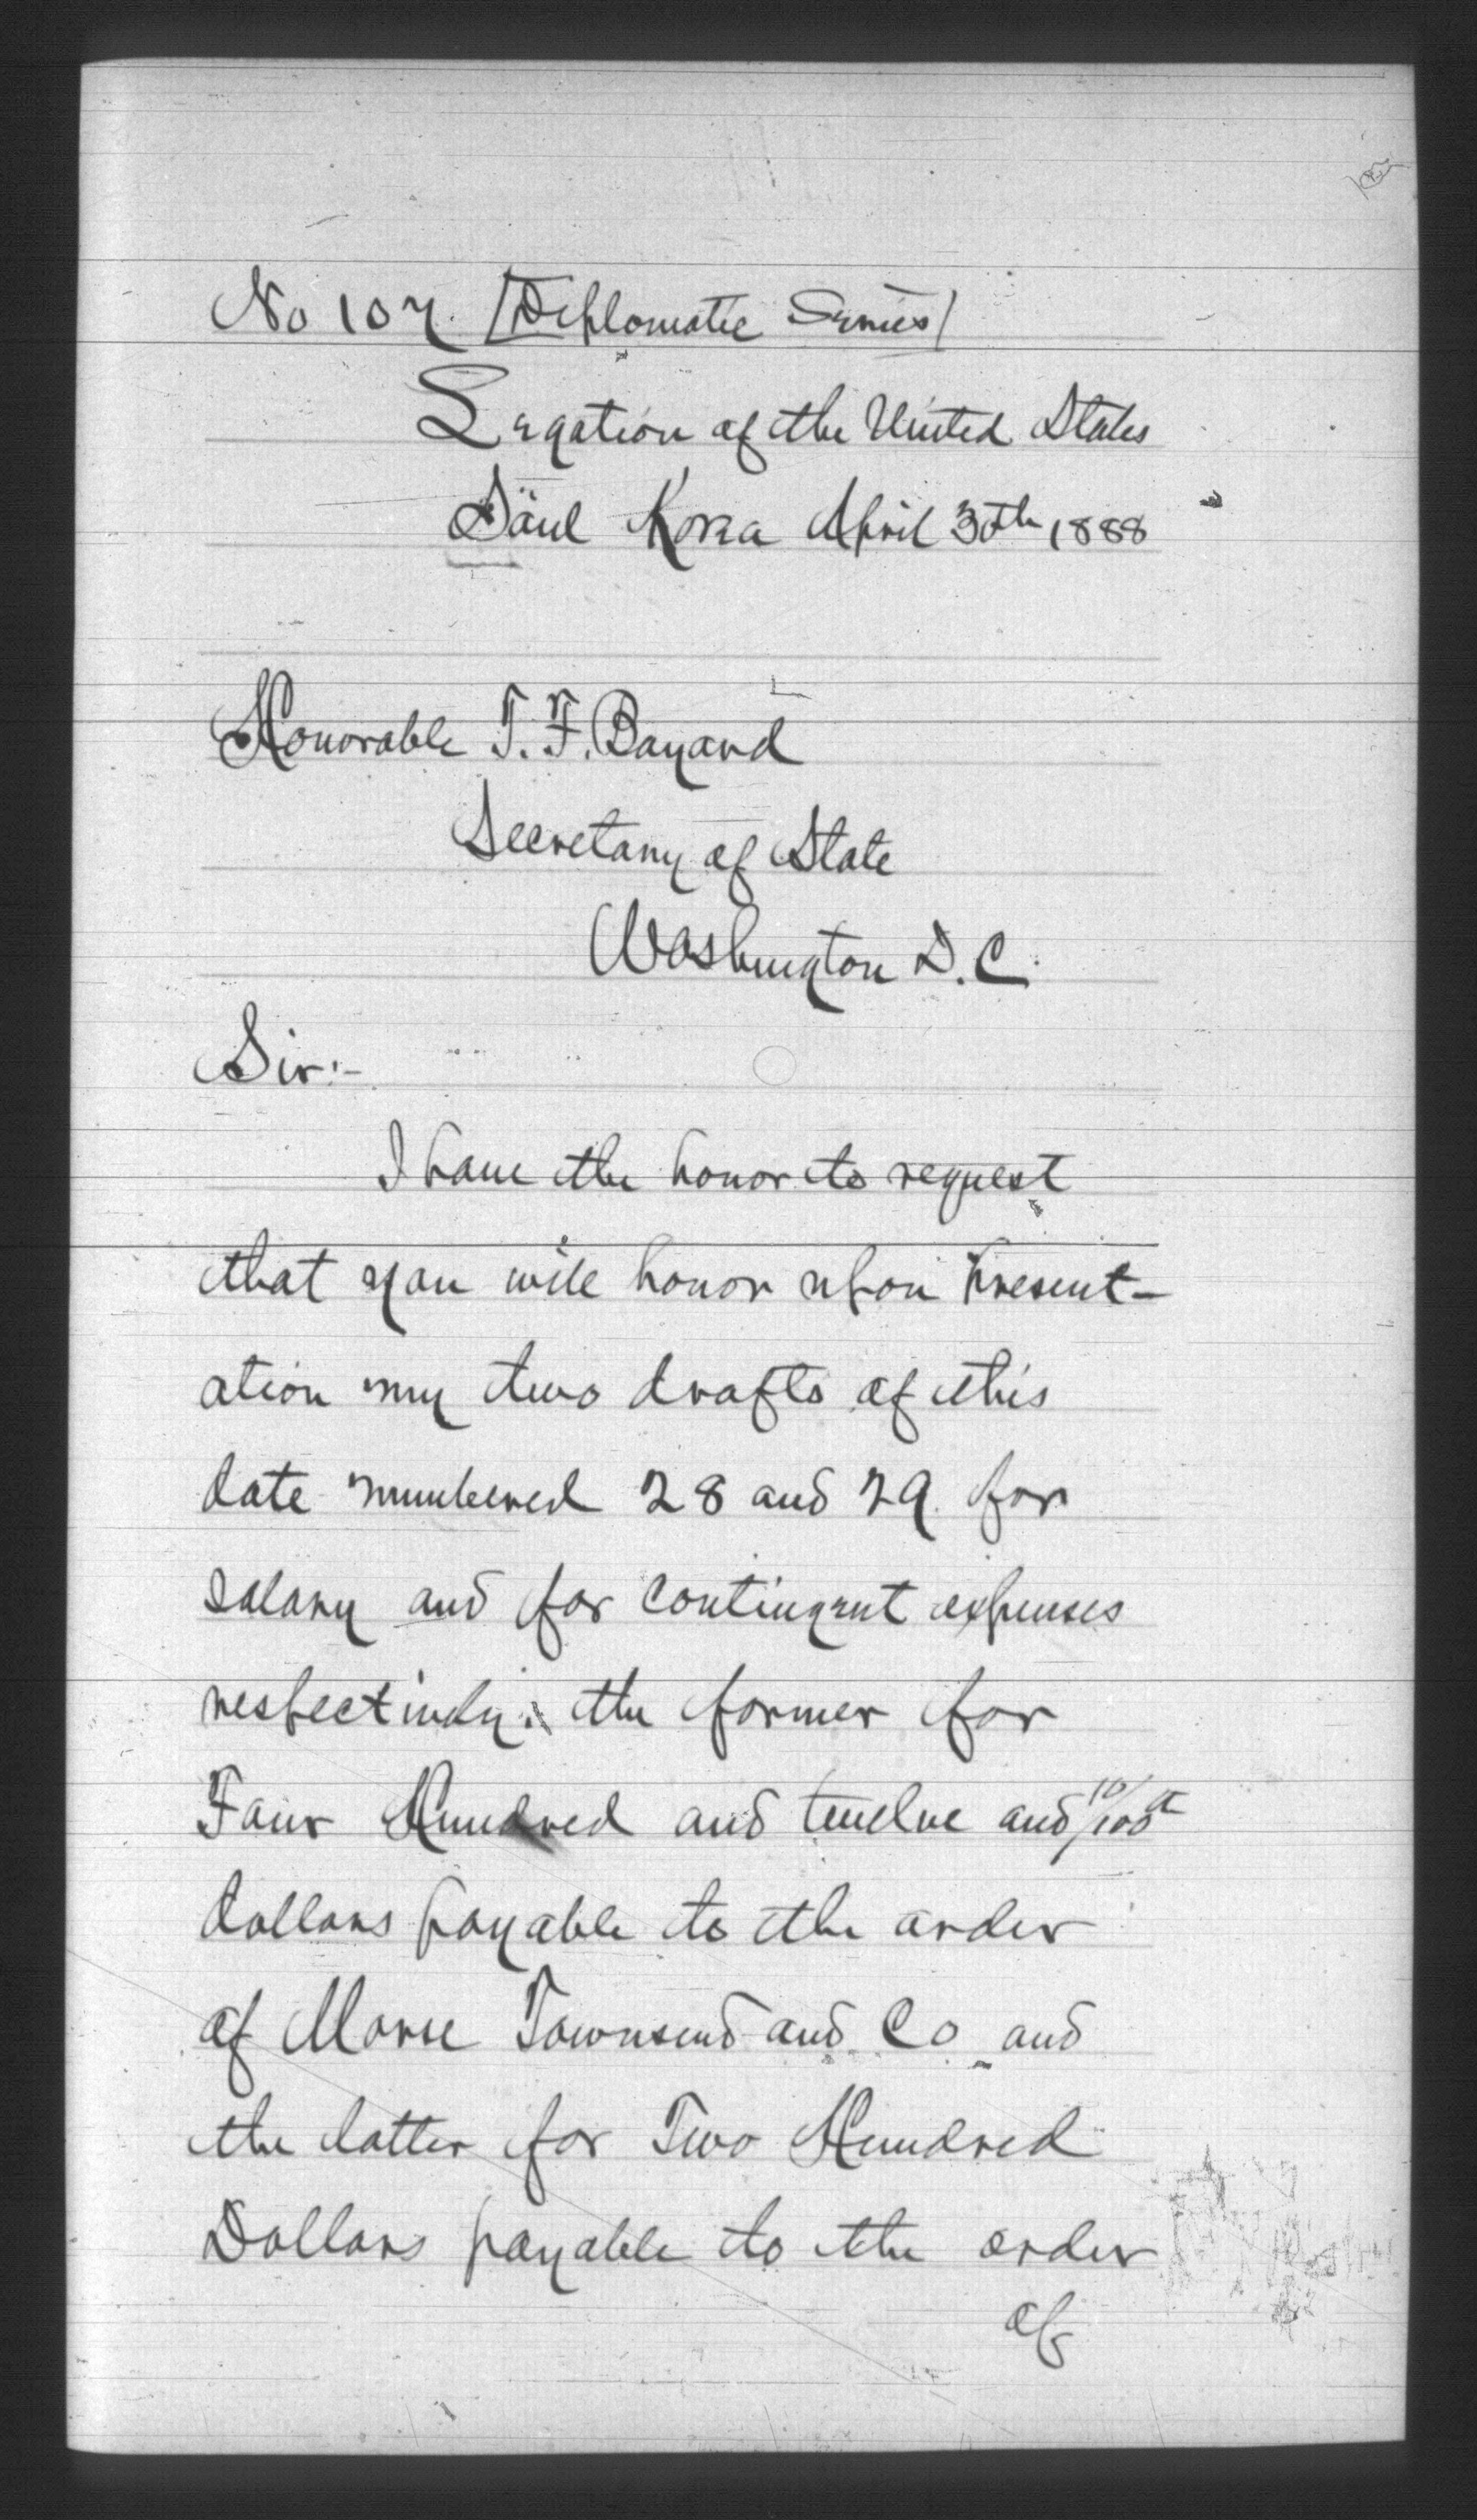 No 107. [Diplomatic Series]
Legation of the United States
Söul Korea April 30th 1888
Honorable T. F. Bayard
Secretary of State
Washington D.C.
Sir:-
I have the honor to request
that you will honor upon present-
ation my two drafts of this
date numbered 28 and 29 for
salary and for contingent expenses
respectively: the former for
Four Hundred and twelve and 10/100th
dollars payable to the order
of Morse Townsend and Co and
the latter for Two Hundred
Dollars payable to the order
of